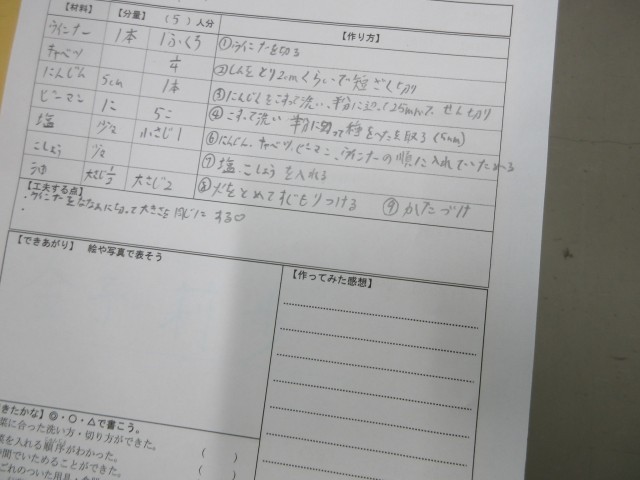 【材料】 【分量】 (5)人分 【作り方】
ウインナー 1本 1ふくろ ①ウインナーを切る
キャベツ 1/4 ②しんをとり2cmくらいで短ざく切り
にんじん 5cm 1本 ③にんじんをこすって洗い、半分に 25mmで、せん切り
ピーマン 1こ 5こ ④こすって洗い 半分に切って種を 取る(5mm)
塩 少々 小さじ1 ⑥にんじん、キャベツ、ピーマン、ウインナーの順に入れていためる
こしょう 少々 ⑦塩、こしょうを入れる
油 大さじ1/2 大さじ2 ⑧火をとめてすぐもりつける ⑨かたづけ
【工夫する点】
・ウインナーをななめに切って大きさを同じにする
・
【できあがり】 絵や写真で表そう
【作ってみた感想】
きたかな】◎・○・△で書こう。
菜に合った洗い方・切り方ができた。 ( )
菜を入れる順序がわかった。 ( )
間でいためることができた。 ( )
ごれのついた用具・食器